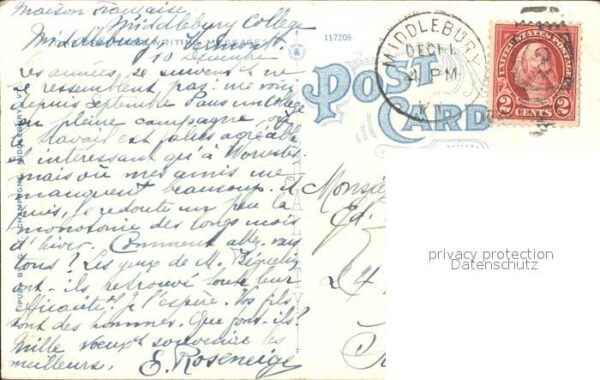 Maison française
Middlebury College
Middlebury, Vermont.
10 Décembre
Les années se suivent et ne
se ressemblent pas: me voici
depuis septembre dans un collège
en pleine campagne, où
le travail est plus agréable
et intéressant qu'à Worcester
mais où mes amis me
manquent beaucoup. Et
puis, je redoute un peu la
monotonie des longs mois
d'hiver. Comment allez-vous
tous? Les yeux de M.
ont-ils retrouvé toute leur
efficacité? Je l'espère. Vos fils
sont des hommes. Que font-ils?
Mille voeux et souvenirs les
meilleurs. E.
117206
POST
CARD
MIDDLEBURY
DEC 11
4 PM
UNITED STATES POSTAGE
2 CENTS 2
Monsie
Ed.
24.
privacy protection
Datenschutz